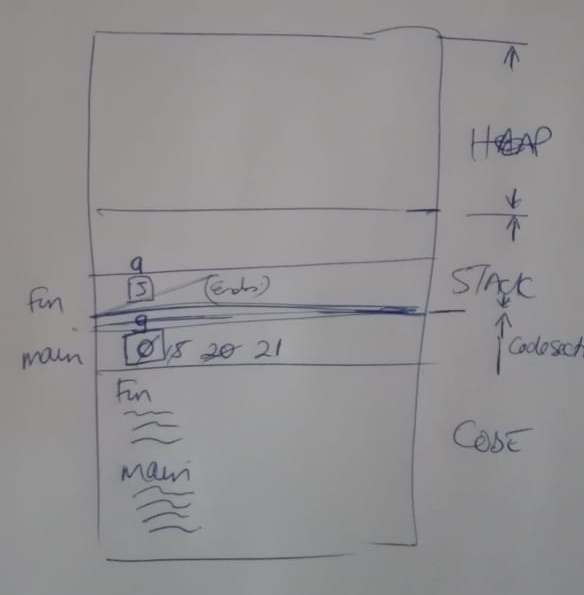 HEAP
g
5 (Ends)
Fun
STACK
g
main 0 15 20 21
Code sect
Fun
CODE
main